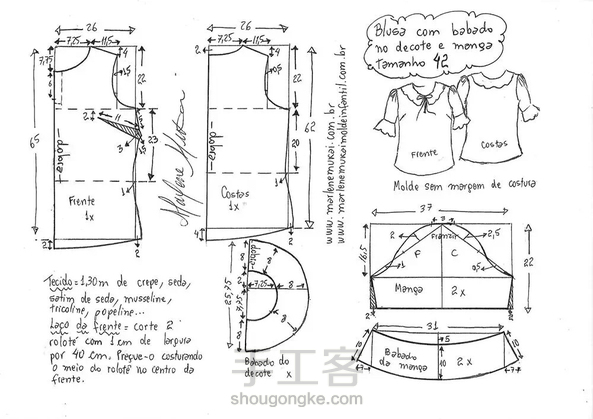 Blusa com babado
no decote e manga
tamanho 42
Frente
Costas
Molde sem margem de costura
www.marlenemukai.com.br
www.marlenemukaimoldeinfantil.com.br
26
7,25
11,5
4
7,75
6
1,5
22
65
2
11
3
23
dobra
1
Frente
1x
2
2
26
7,25
11,5
4
0,5
22
62
20
dobra
1
Costas
1x
4
2
Marlene Mukai
37
3
2
Franzir
2,5
16,5
F
C
1
0,5
Manga
2x
2
2
31
5
10
10
10
Babado
da manga
2x
7
7
8
dobra
8
2
7,25
8
8
8
Babado do
decote x
Tecido = 1,30m de crepe, seda,
satim de seda, musseline,
tricoline, popeline...
Laço da frente = corte 2
rolotê com 1cm de largura
por 40 cm. Pregue-o costurando
o meio do rolotê no centro da
frente.
手工客
shougongke.com